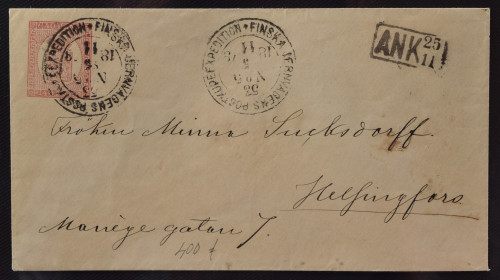 FINSKA JERNVÄGENS POSTKUPÉEXPEDITION
FINSKA JERNVÄGENS POSTKUPÉEXPEDITION
ANK 25/11
Fröken Minna Sucksdorff
Helsingfors
Manège gatan 7.
400